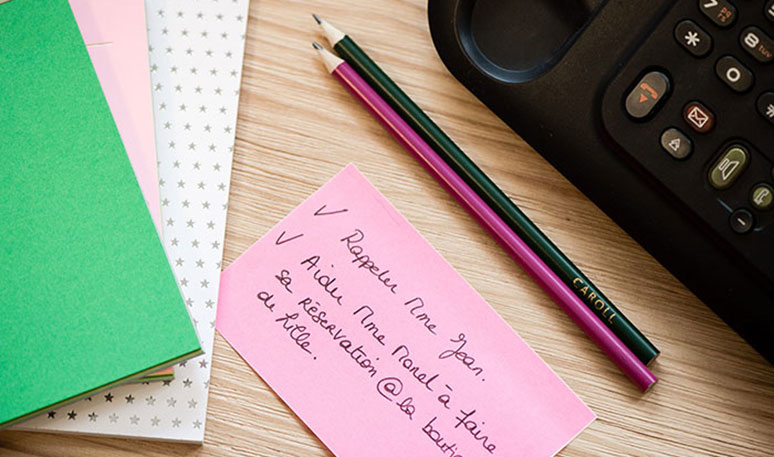 ✓ Rappeler Mme Jean.
✓ Aider Mme Morel à faire
sa réservation @ la boutique
de Lille.
CAROLL
7
8 tuv
*
0